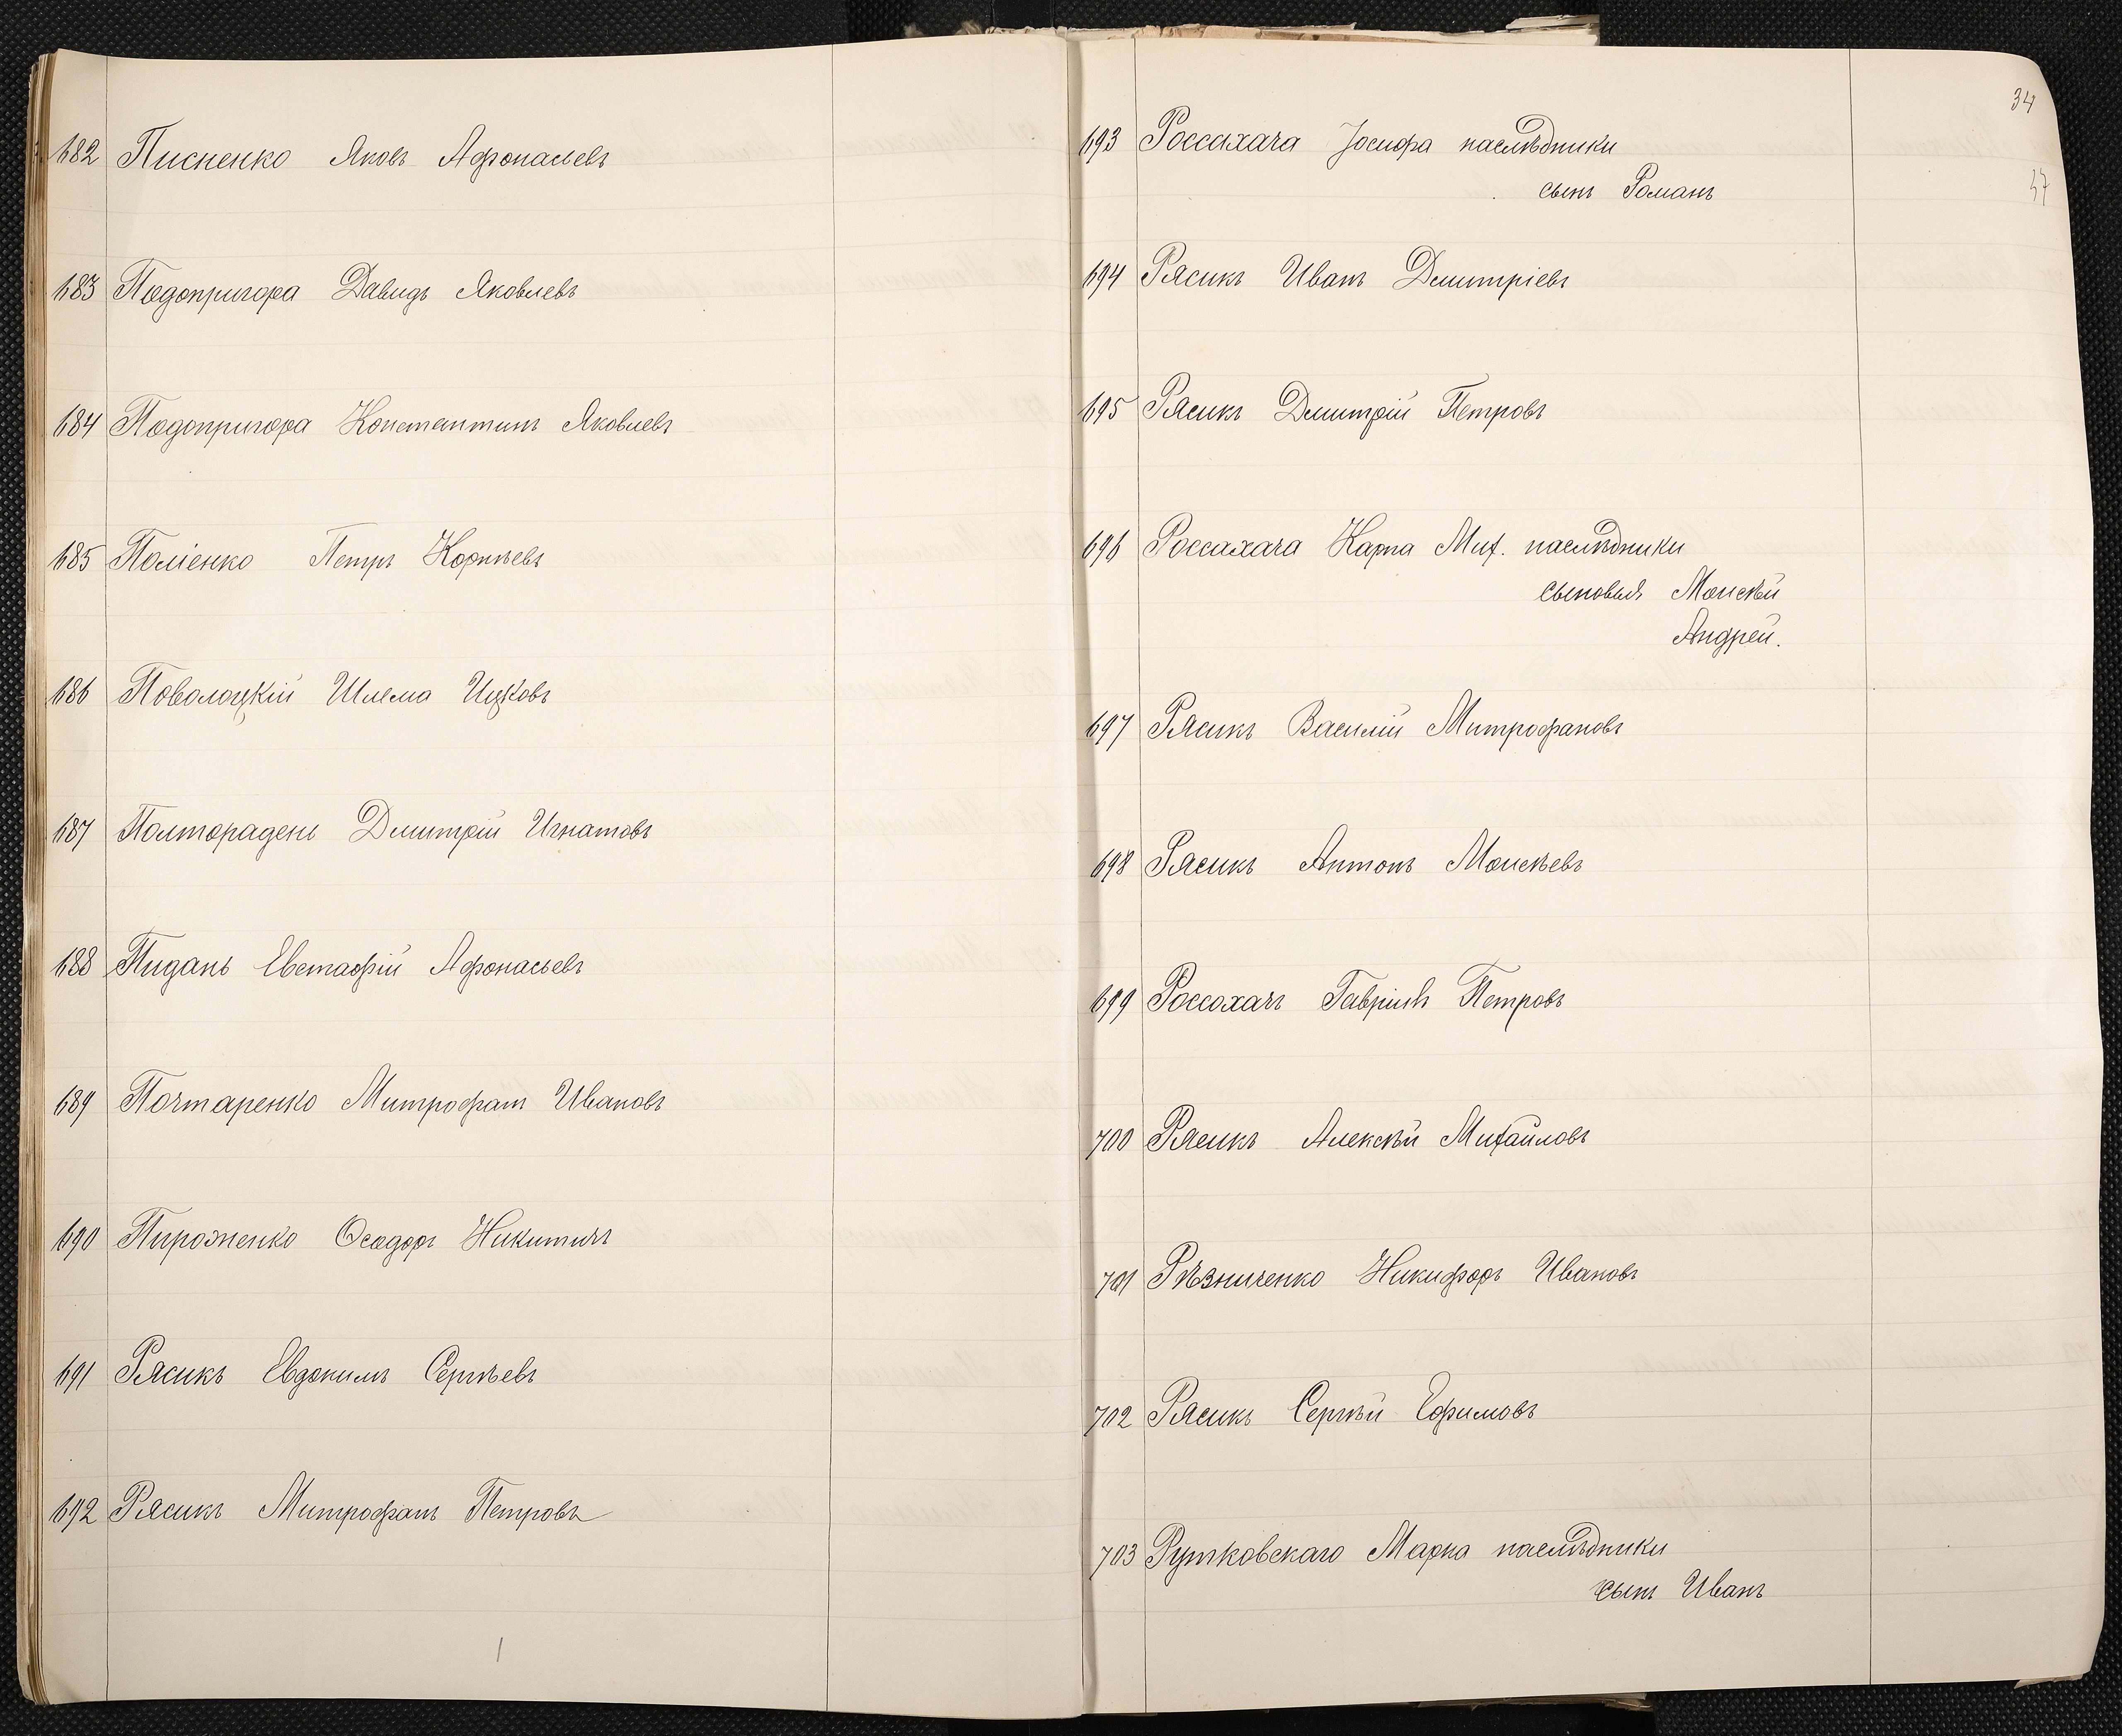 682 Писненко Яковъ Афонасьевъ
683 Подопригора Давидъ Яковлевъ
684 Подопригора Константинъ Яковлевъ
685 Поліенко Петръ Корнѣевъ
686 Поволоцкій Шлема Ицковъ
687 Полторадень Дмитрій Игнатовъ
688 Пидань Евстафій Афонасьевъ
689 Почтаренко Митрофанъ Ивановъ
690 Пироженко Ѳеодоръ Никитичъ
691 Рясикъ Евдокимъ Сергѣевъ
692 Рясикъ Митрофанъ Петровъ
34
47
693 Россахача Іосифа наслѣдники
сынъ Романъ
694 Рясикъ Иванъ Дмитріевъ
695 Рясикъ Дмитрій Петровъ
696 Россахача Карпа Мих. наслѣдники
сыновья Моисѣй
Андрей.
697 Рясикъ Василій Митрофановъ
698 Рясикъ Антонъ Моисѣевъ
699 Россохачъ Гавріилъ Петровъ
700 Рясикъ Алексѣй Михайловъ
701 Рѣзниченко Никифоръ Ивановъ
702 Рясикъ Сергѣй Ефимовъ
703 Рутковскаго Марка наслѣдники
сынъ Иванъ